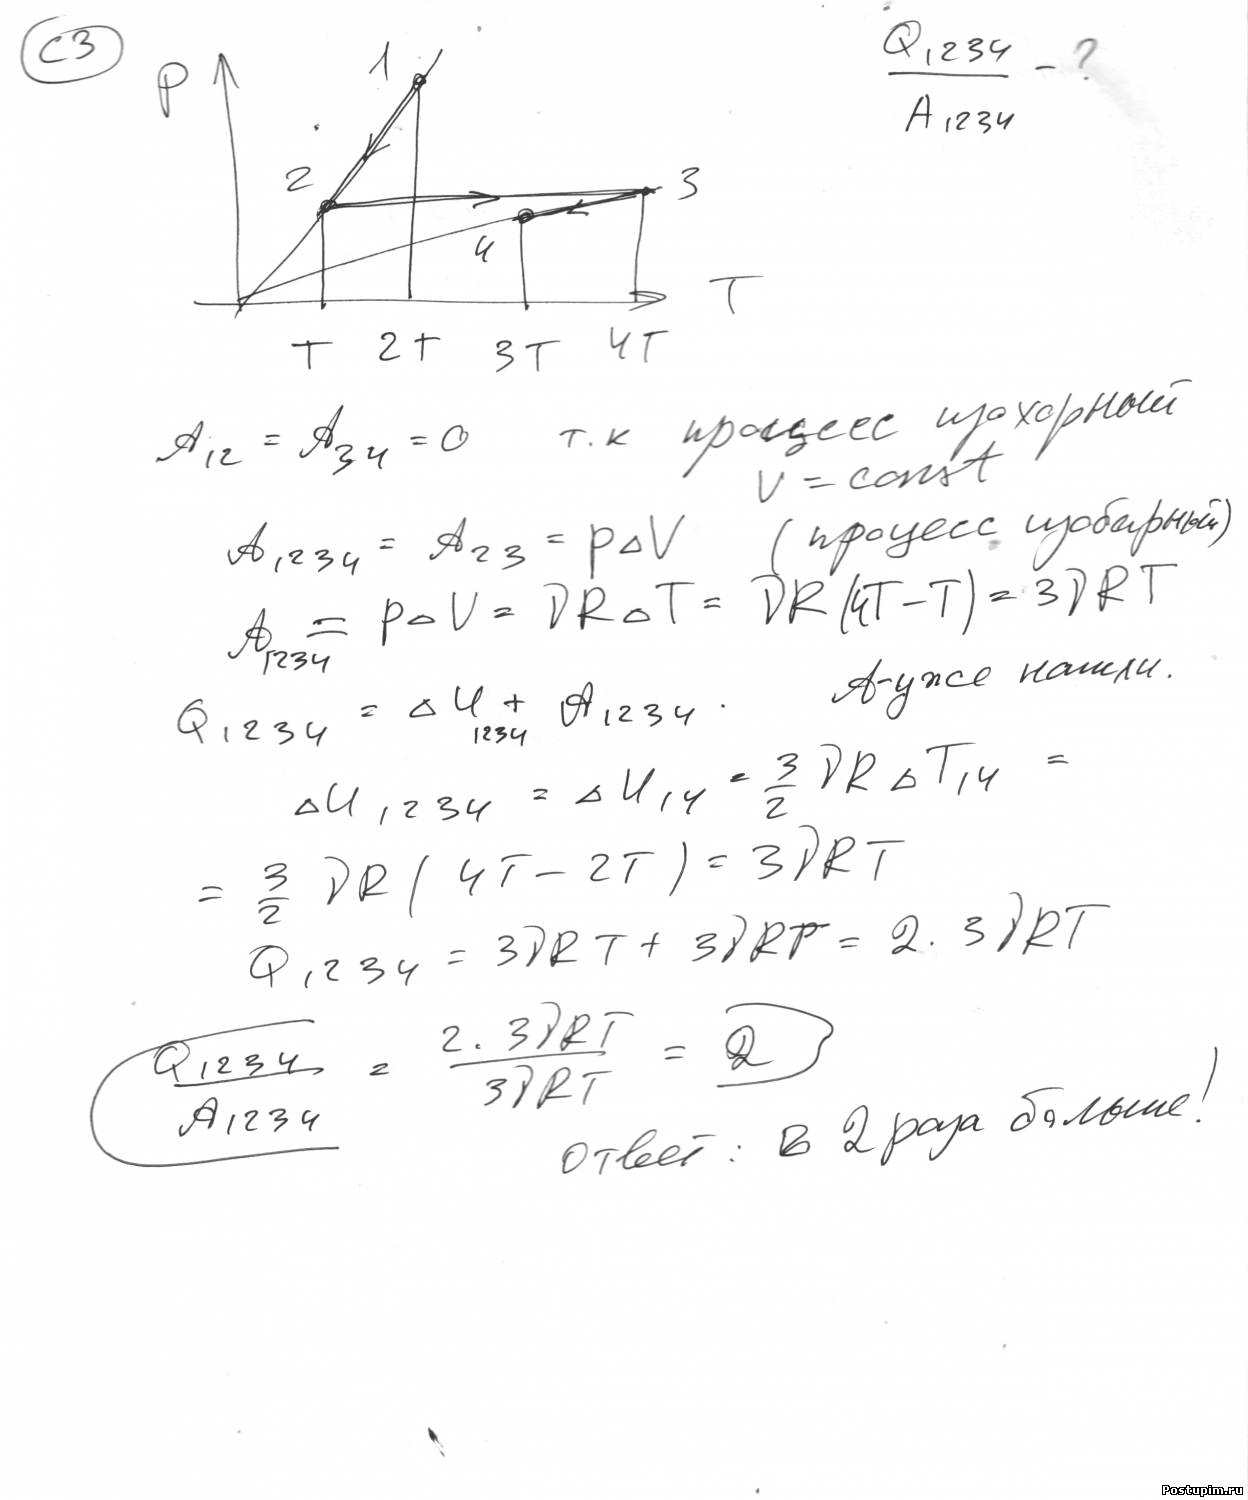 С3
P
1
2
3
4
T
T 2T 3T 4T
Q₁₂₃₄ / A₁₂₃₄ - ?
A₁₂ = A₃₄ = 0 т.к процесс изохорный
V = const
A₁₂₃₄ = A₂₃ = P△V (процесс изобарный)
A₁₂₃₄ = P△V = νR△T = νR(4T-T) = 3νRT
Q₁₂₃₄ = △U₁₂₃₄ + A₁₂₃₄. А-уже нашли.
△U₁₂₃₄ = △U₁₄ = 3/2 νR△T₁₄ =
= 3/2 νR(4T-2T) = 3νRT
Q₁₂₃₄ = 3νRT + 3νRT = 2·3νRT
Q₁₂₃₄ / A₁₂₃₄ = 2·3νRT / 3νRT = 2
Ответ: в 2 раза больше!
Postupim.ru